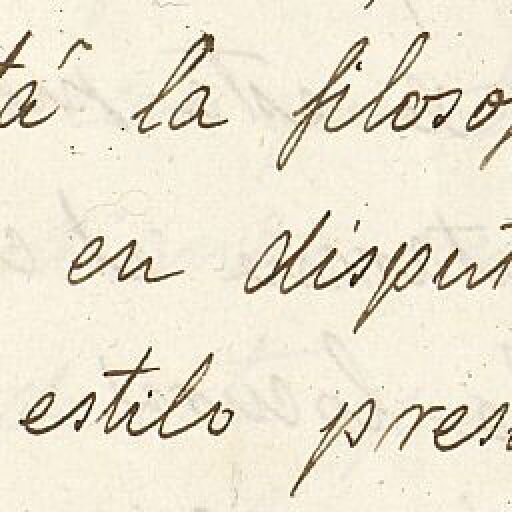 tá la filoso
en disput
estilo pres